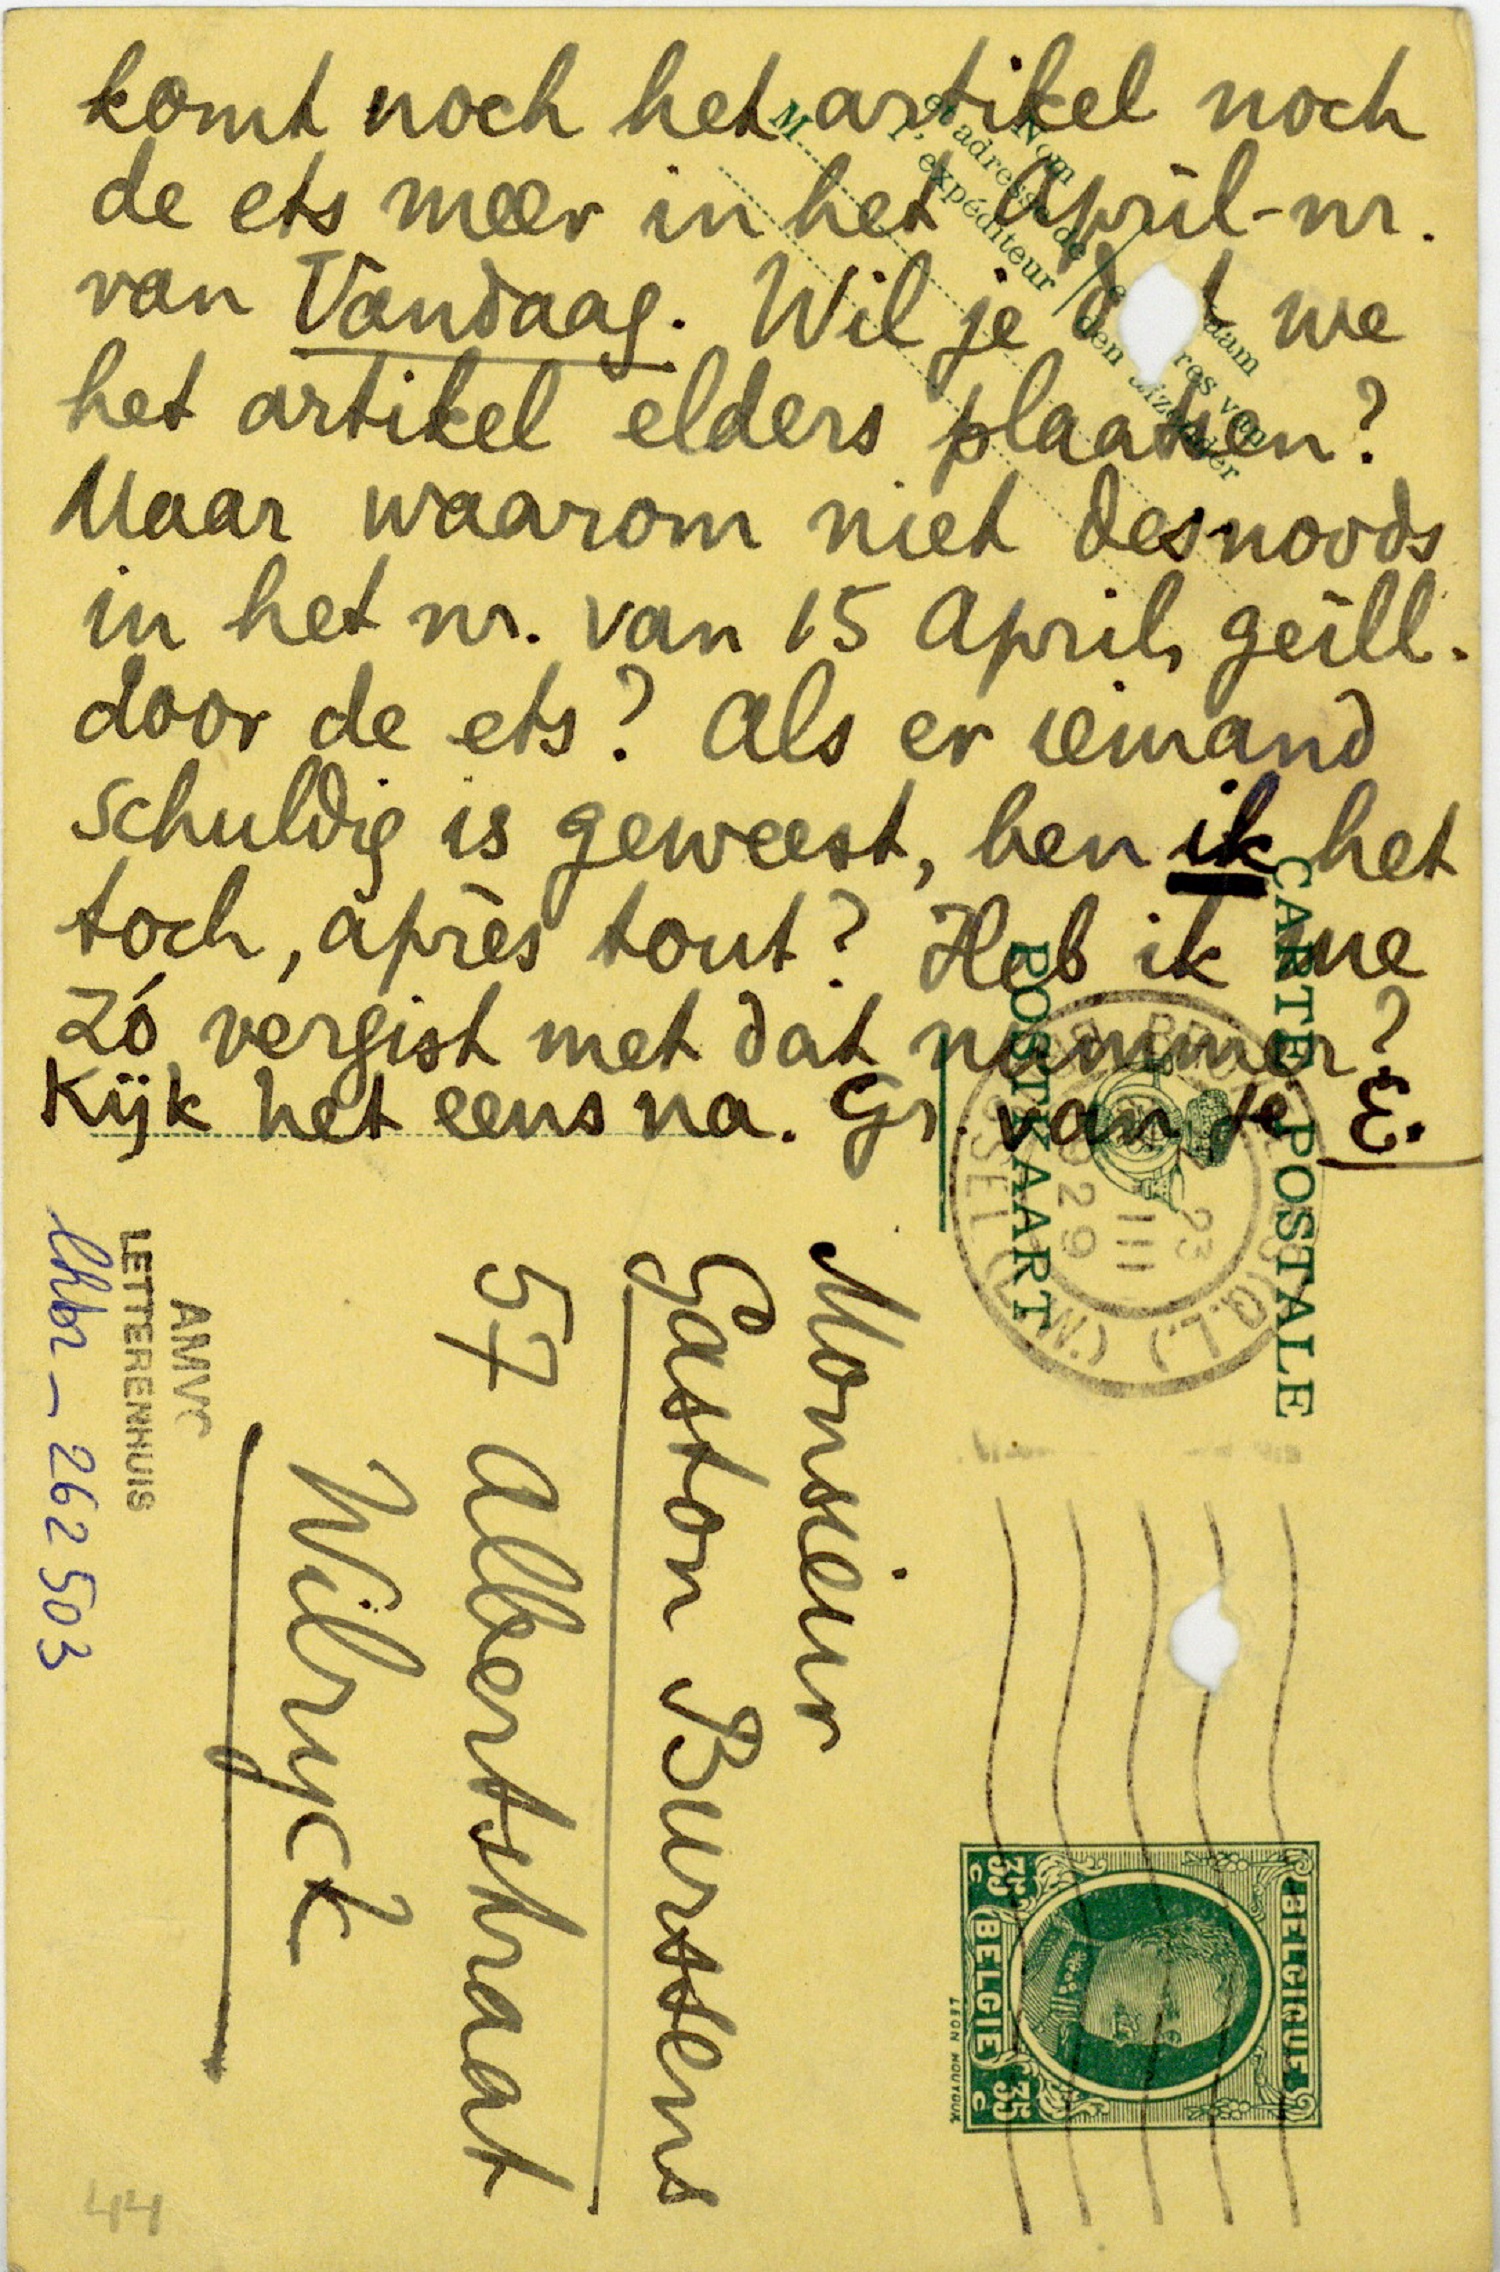 komt noch het artikel noch
de ets meer in het April-nr.
van Vandaag. Wil je dat we
het artikel elders plaatsen?
Maar waarom niet desnoods
in het nr. van 15 April, geïll.
door de ets? Als er iemand
schuldig is geweest, ben ik het
toch, après tout? Heb ik me
zó vergist met dat nummer?
Kijk het eens na. Gr. van je E.
Nom
et adresse de
l'expéditeur
M
den afzender
CARTE POSTALE
POSTKAART
23
III
29
BELGIQUE
35 c BELGIE 35 c
Monsieur
Gaston Burssens
57 Albertstraat
Wilryck
AMVC
LETTERENHUIS
262503
44